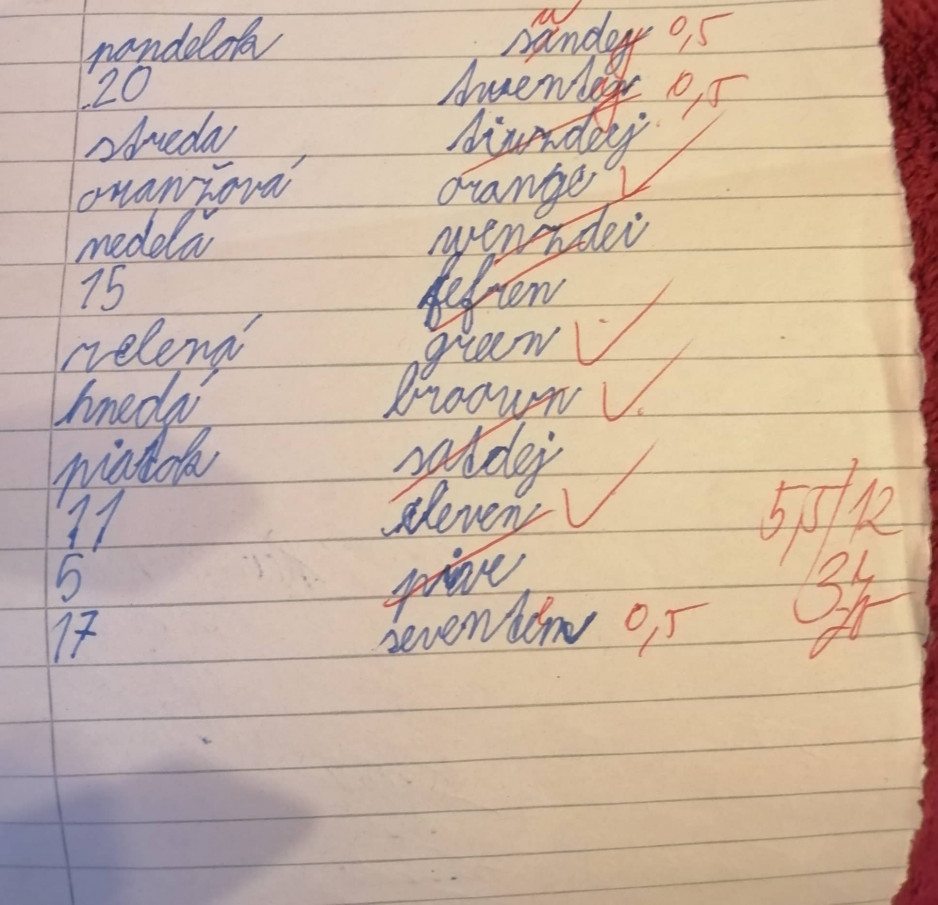 u
pondelok sandej 0,5
20 twentey 0,5
streda tiurzdej
oranžová orange
nedeľa wenzdei
15 fefren
zelená green
hnedá broown
piatok satdej
11 eleven 5,5/12
5 pive 34
17 seventen 0,5